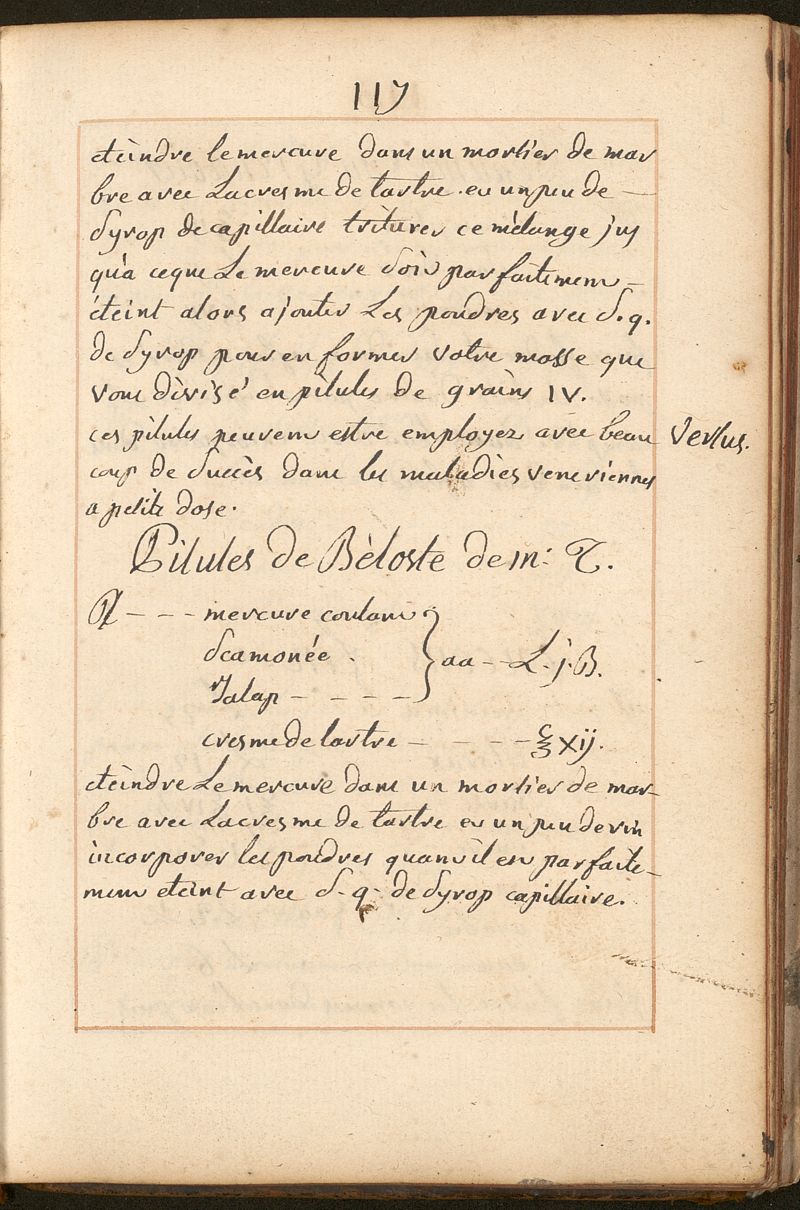 117
eteindre le mercure dans un mortier de mar
bre avec La cresme de tartre et un peu de —
Syrop de capillaire triturer ce mélange jus
qu'à ce que Le mercure soit parfaitement —
éteint alors ajouter Les poudres avec S. q.
de Syrop pour en former votre masse que
vous divisé en pilules de grains IV.
ces pilules peuvent estre employez avec beau
Vertus.
coup de Succès dans les maladies veneriennes
a petite dose.
Pilules de Bèloste de m: T.
℞ - - - mercure coulant
Scamonée . } aa - - L. j. B.
Jalap - - - -
cresme de tartre - - - - - ℥ Xij.
eteindre Le mercure dans un mortier de mar-
bre avec La cresme de tartre et un peu de vin
incorporer les poudres quant il est parfaite-
ment eteint avec S. q. de Syrop capillaire.